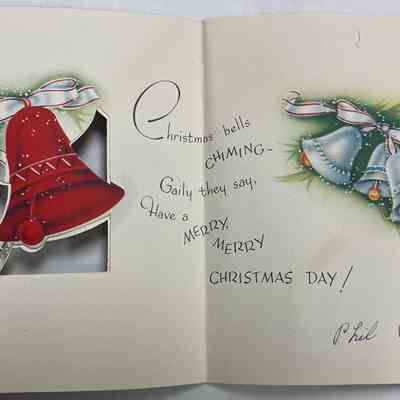 Christmas bells
CHIMING—
Gaily they say,
Have a
MERRY,
MERRY
CHRISTMAS DAY!
Phil